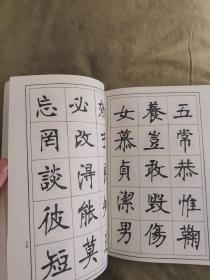 五常恭惟鞠
養豈敢毀傷
女慕貞潔男
必改淂能莫
忘罔談彼短